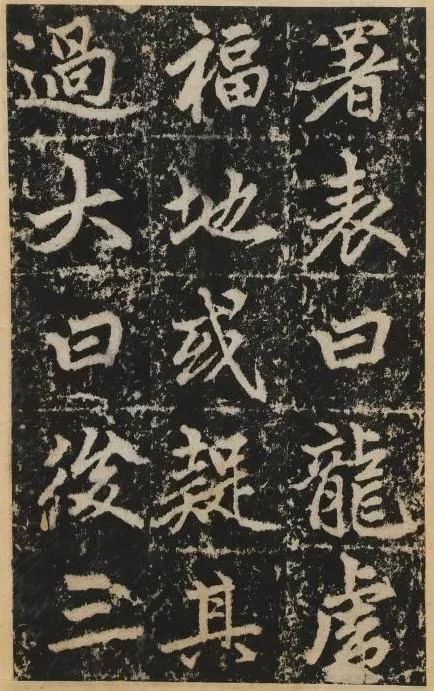 署表曰龍虎
福地或疑其
過大曰後三